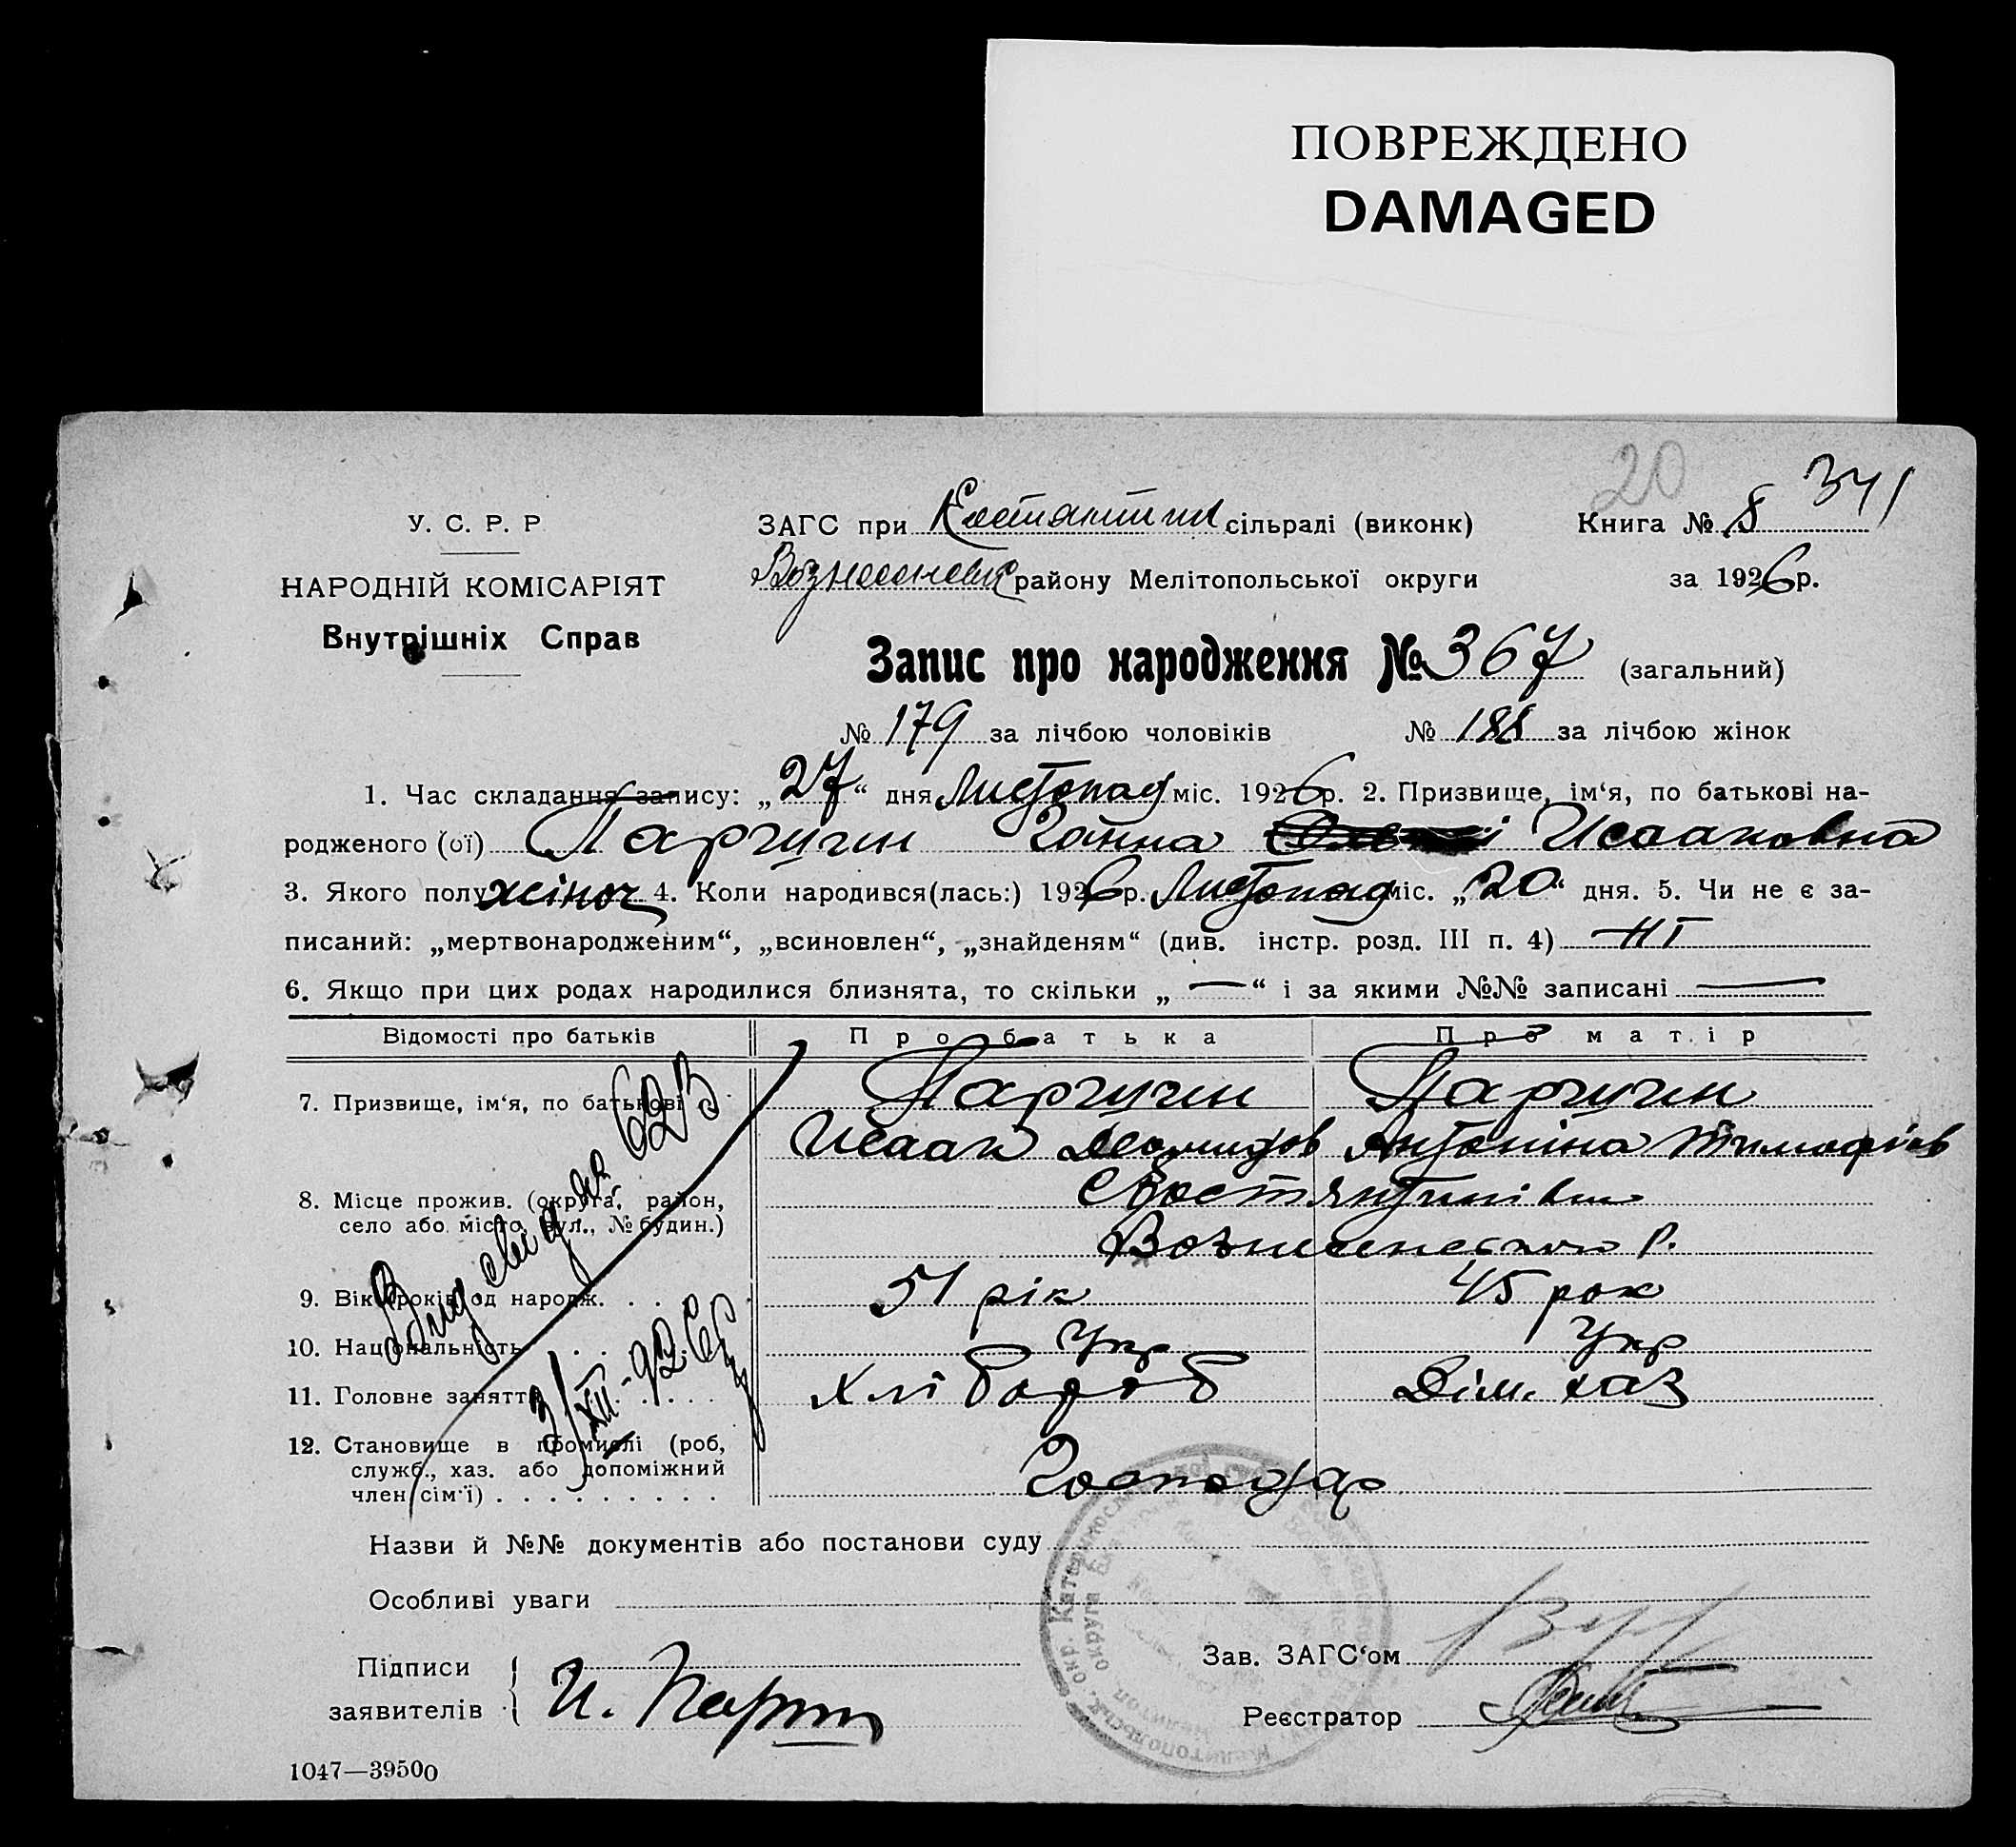 ПОВРЕЖДЕНО
DAMAGED
20 341
У. С. Р. Р.
НАРОДНІЙ КОМІСАРІЯТ
Внутрішніх Справ
ЗАГС при сільраді (виконк) Книга № 8
району Мелітопольської округи за 1926 р.
Запис про народження № 367 (загальний)
№ 179 за лічбою чоловіків № 188 за лічбою жінок
1. Час складання запису: „27“ дня Листопад міс. 1926 р. 2. Призвище, ім‘я, по батькові на-
родженого (ої) Паргучин Ганна Исааковна
3. Якого полу жіноч 4. Коли народився(лась:) 1926 р. Листопад міс. „20“ дня. 5. Чи не є за-
писаний: „мертвонародженим“, „всиновлен“, „знайденям“ (див. інстр. розд. III п. 4) НІ
6. Якщо при цих родах народилися близнята, то скільки „—“ і за якими №№ записані —
Відомості про батьків Про батька Про матір
7. Призвище, ім‘я, по батькові Паргучин Паргучин
Исаак Антоніна Тимофіів
8. Місце прожив. (округа, район,
село або місто, вул., № будин.)
Р.
9. Вік (років) од народж. . . 51 рік 45 рок
10. Національність . . . . Укр Укр
11. Головне заняття . . . . Хлібороб Дім. хаз
12. Становище в промислі (роб,
служб., хаз. або допоміжний
член сім‘ї) . . . . . . . . . Господар
623
3/XII-926 р
Назви й №№ документів або постанови суду
Особливі уваги
Підписи
заявителів И.
Зав. ЗАГС‘ом
Реєстратор
1047—39500